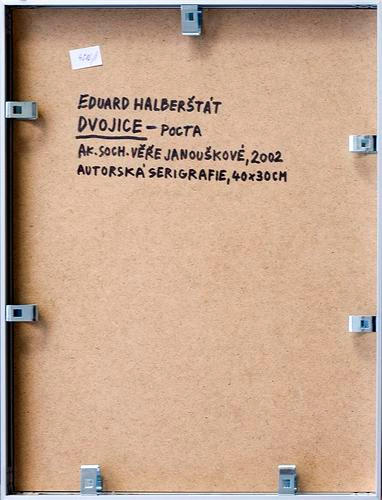 EDUARD HALBERŠTÁT
DVOJICE – POCTA
AK. SOCH. VĚŘE JANOUŠKOVÉ, 2002
AUTORSKÁ SERIGRAFIE, 40x30CM